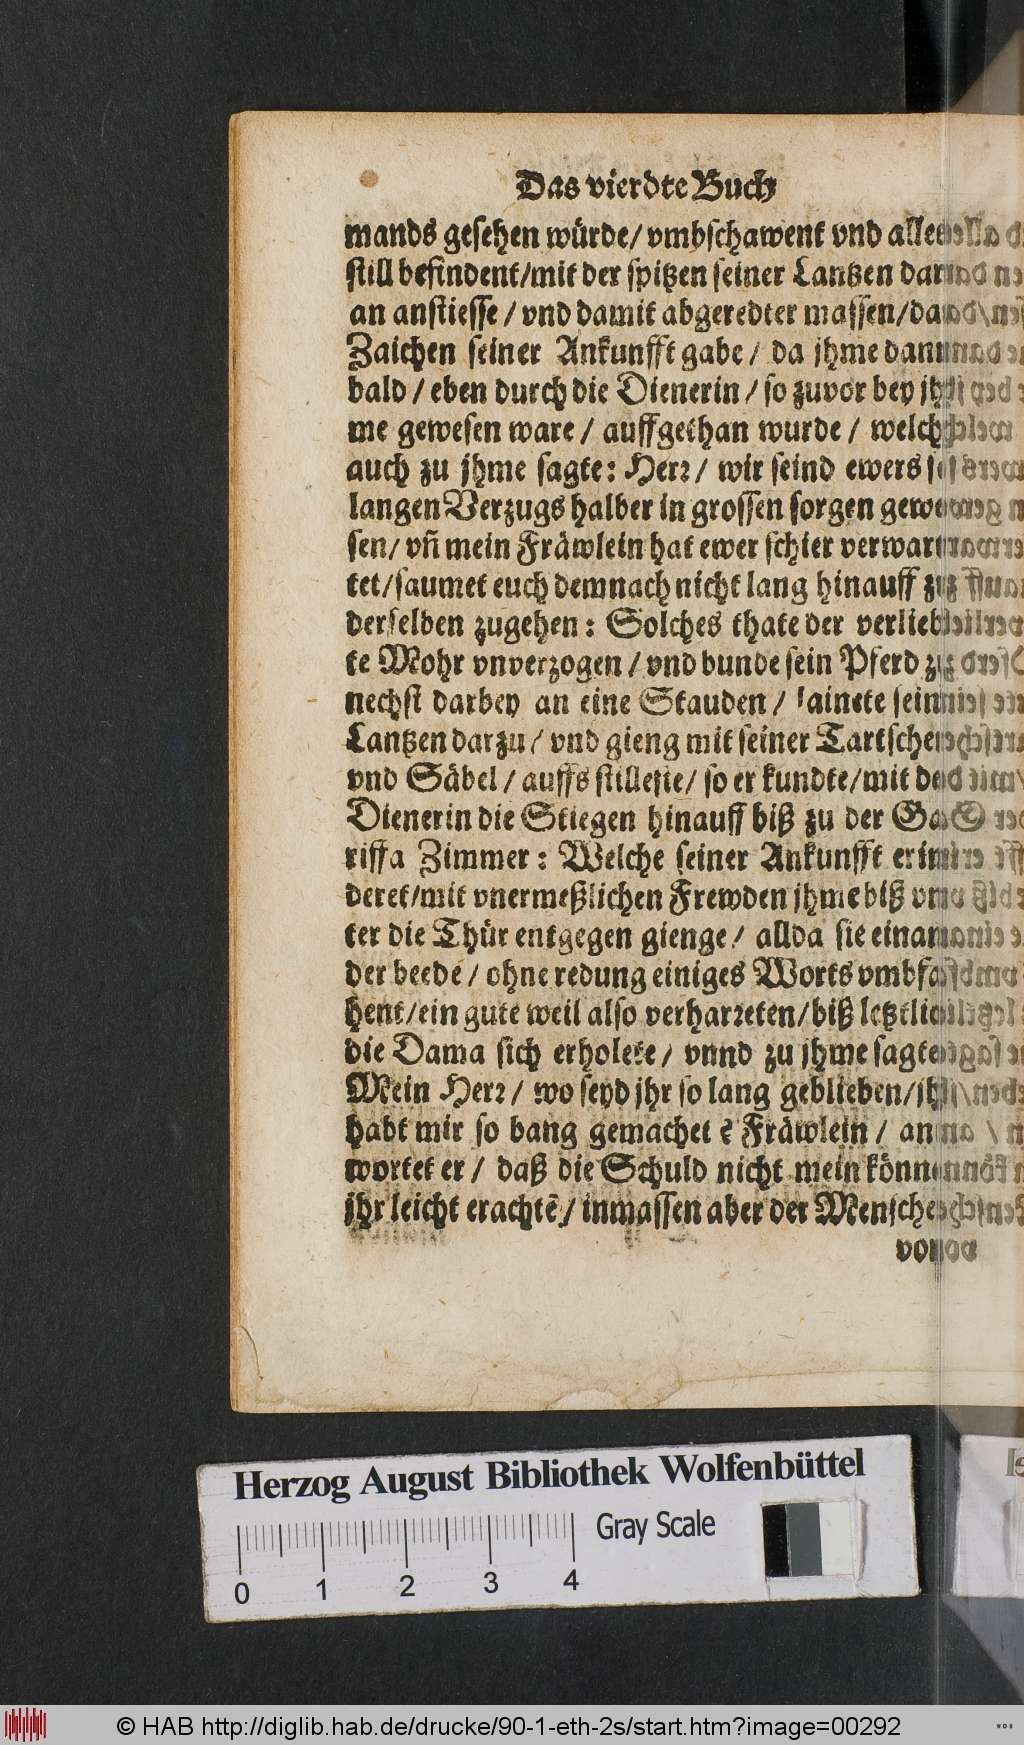 Das vierdte Buch
mands gesehen würde/ vmbschawent vnd alles
still befindent/mit der spitzen seiner Lantzen dar
an anstiesse / vnd damit abgeredter massen/das
Zaichen seiner Ankunfft gabe / da jhme dann
bald / eben durch die Dienerin / so zuvor bey jh
me gewesen ware / auffgethan wurde / welche
auch zu jhme sagte: Herꝛ / wir seind ewers so
langen Verzugs halber in grossen sorgen gewe
sen/ vñ mein Fräwlein hat ewer schier verwar
tet/saumet euch demnach nicht lang hinauff zu
derselben zugehen: Solches thate der verlieb
te Mohr vnverzogen / vnd bunde sein Pferd zu
nechst darbey an eine Stauden / lainete sein
Lantzen darzu / vnd gieng mit seiner Tartschen
vnd Säbel / auffs stilleste / so er kundte/mit der
Dienerin die Stiegen hinauff biß zu der Ga
riffa Zimmer: Welche seiner Ankunfft erin
deret/mit vnermeßlichen Frewden jhme biß vn
ter die Thür entgegen gienge / allda sie einan
der beede / ohne redung einiges Worts vmbfa
hent/ein gute weil also verharꝛeten/ biß letztlich
die Dama sich erholete / vnnd zu jhme sagte
Mein Herꝛ / wo seyd jhr so lang geblieben/jhr
habt mir so bang gemachet ? Fräwlein / ant
wortet er / daß die Schuld nicht mein können
jhr leicht erachtē / inmassen aber der Mensch
von
Herzog August Bibliothek Wolfenbüttel
Gray Scale
0 1 2 3 4
© HAB http://diglib.hab.de/drucke/90-1-eth-2s/start.htm?image=00292